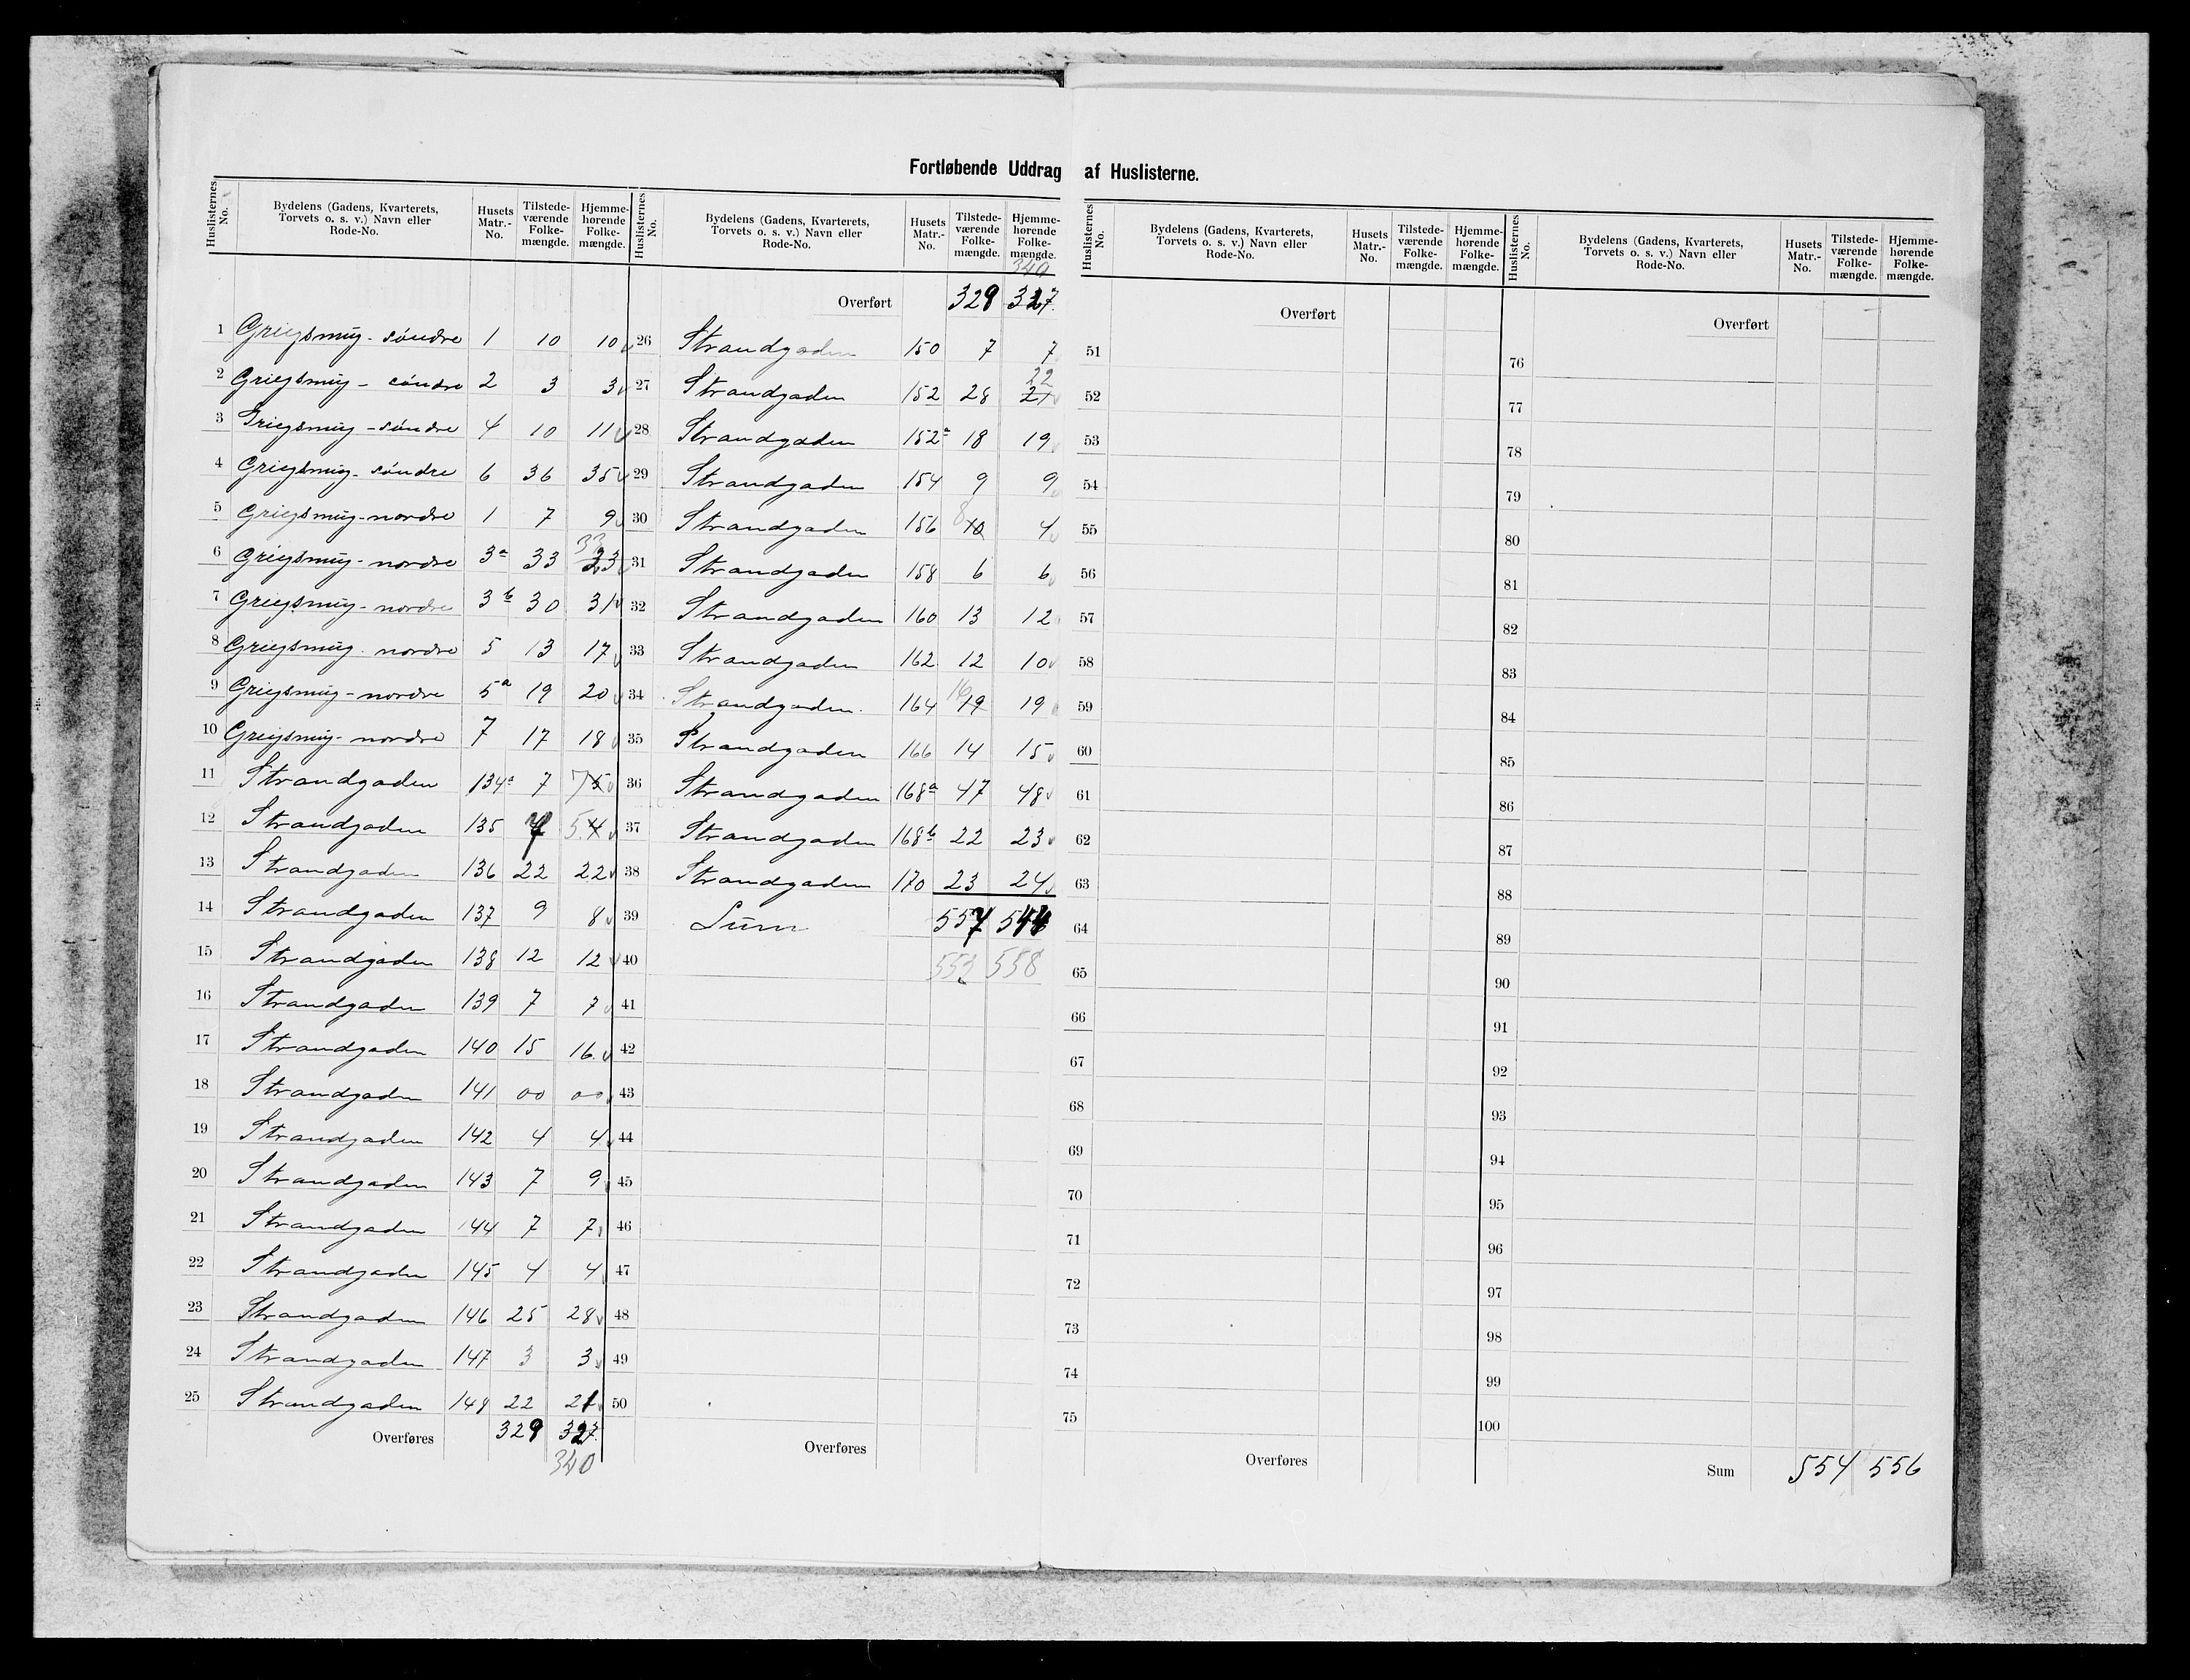 Fortløbende Uddrag af Huslisterne.
Huslisternes No. Bydelens (Gadens, Kvarterets, Torvets o. s. v.) Navn eller Rode-No. Husets Matr.-No. Tilstedeværende Folkemængde. Hjemmehørende Folkemængde.
1 Griegsmug - söndre 1 10 10
2 Griegsmug - söndre 2 3 3
3 Griegsmug - söndre 4 10 11
4 Griegsmug - söndre 6 36 35
5 Griegsmug - nordre 1 7 9
6 Griegsmug - nordre 3a 33 33 23
7 Griegsmug - nordre 3b 30 31
8 Griegsmug - nordre 5 13 17
9 Griegsmug - nordre 5a 19 20
10 Griegsmug - nordre 7 17 18
11 Strandgaden 134a 7 7 5
12 Strandgaden 135 4 5. 4
13 Strandgaden 136 22 22
14 Strandgaden 137 9 8
15 Strandgaden 138 12 12
16 Strandgaden 139 7 7
17 Strandgaden 140 15 16
18 Strandgaden 141 00 00
19 Strandgaden 142 4 4
20 Strandgaden 143 7 9
21 Strandgaden 144 7 7
22 Strandgaden 145 4 4
23 Strandgaden 146 25 28
24 Strandgaden 147 3 3
25 Strandgaden 148 22 21
Overføres 329 327
340
Huslisternes No. Bydelens (Gadens, Kvarterets, Torvets o. s. v.) Navn eller Rode-No. Husets Matr.-No. Tilstedeværende Folkemængde. Hjemmehørende Folkemængde.
340
Overført 329 327
26 Strandgaden 150 7 7
27 Strandgaden 152 28 22 21
28 Strandgaden 152a 18 19
29 Strandgaden 154 9 9
30 Strandgaden 156 8 10 4
31 Strandgaden 158 6 6
32 Strandgaden 160 13 12
33 Strandgaden 162 12 10
34 Strandgaden 164 16 19 19
35 Strandgaden 166 14 15
36 Strandgaden 168a 47 48
37 Strandgaden 168b 22 23
38 Strandgaden 170 23 24
39 Sum 557 544
40 553 558
41
42
43
44
45
46
47
48
49
50
Overføres
Huslisternes No. Bydelens (Gadens, Kvarterets, Torvets o. s. v.) Navn eller Rode-No. Husets Matr.-No. Tilstedeværende Folkemængde. Hjemmehørende Folkemængde.
Overført
51
52
53
54
55
56
57
58
59
60
61
62
63
64
65
66
67
68
69
70
71
72
73
74
75
Overføres
Huslisternes No. Bydelens (Gadens, Kvarterets, Torvets o. s. v.) Navn eller Rode-No. Husets Matr.-No. Tilstedeværende Folkemængde. Hjemmehørende Folkemængde.
Overført
76
77
78
79
80
81
82
83
84
85
86
87
88
89
90
91
92
93
94
95
96
97
98
99
100
Sum 554 556